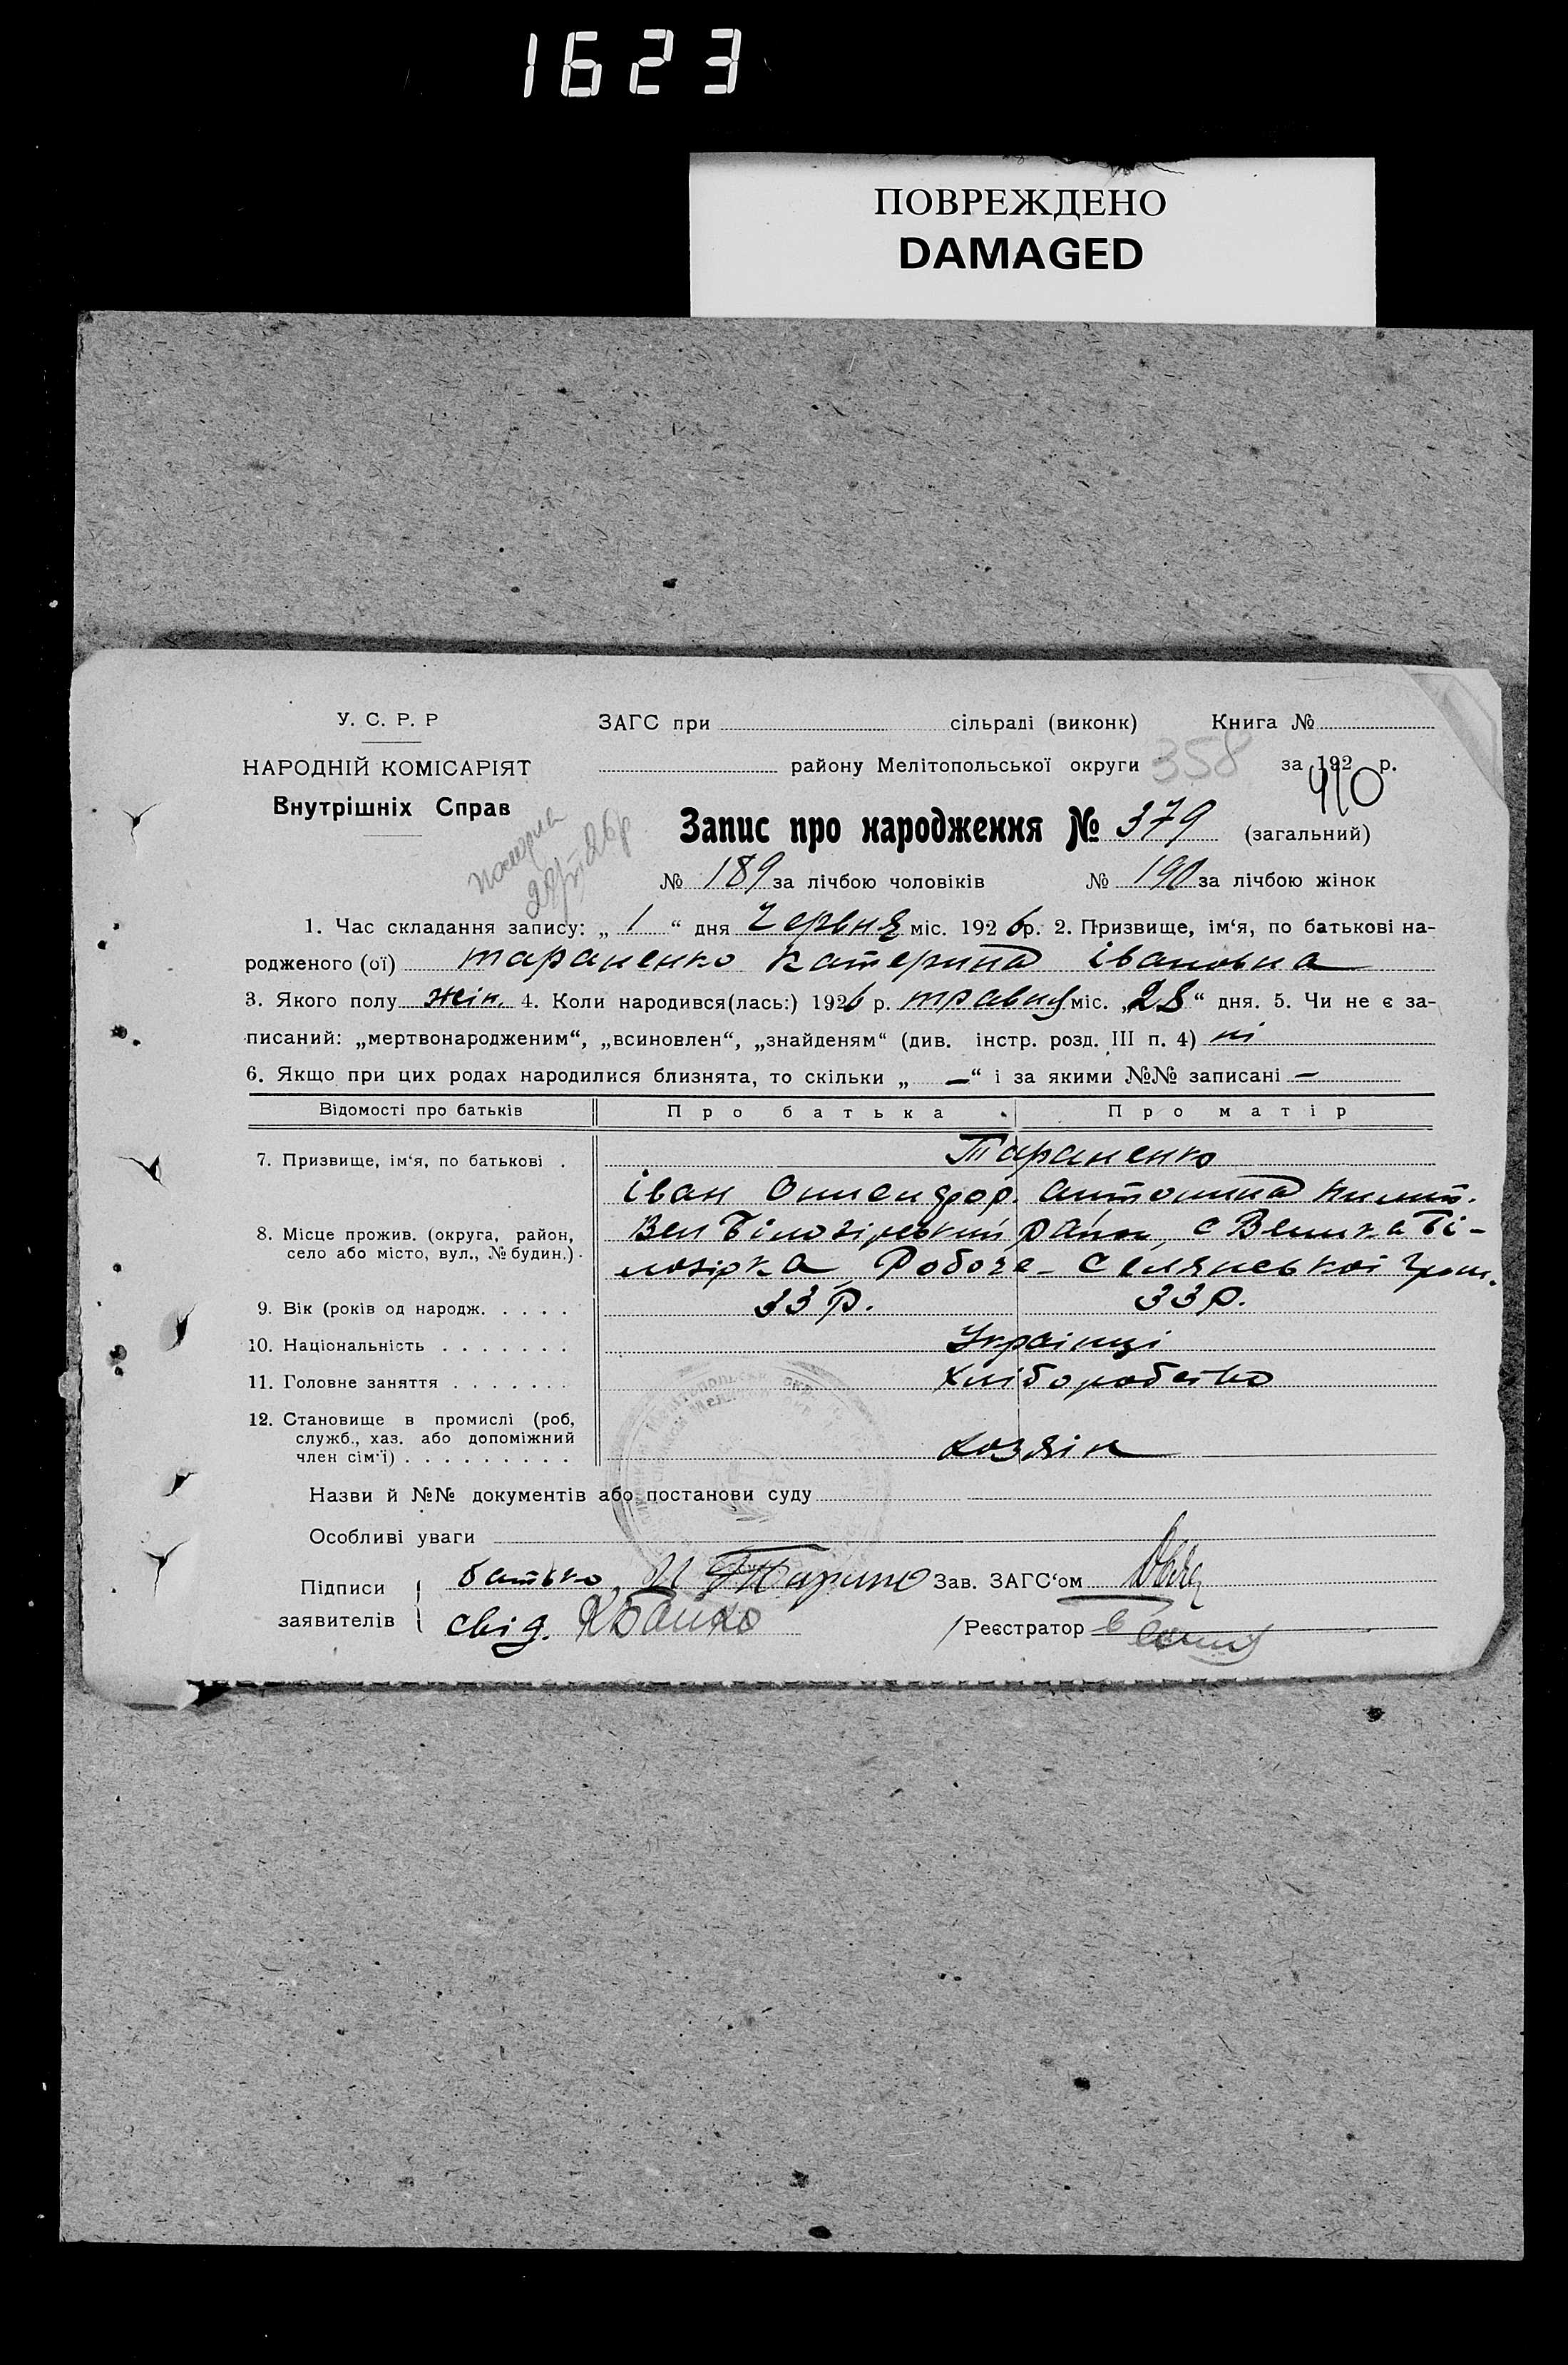 1623
ПОВРЕЖДЕНО
DAMAGED
У. С. Р. Р
ЗАГС при сільраді (виконк) Книга №
НАРОДНІЙ КОМІСАРІЯТ
району Мелітопольської округи 358 за 192 р.
410
Внутрішніх Справ
Запис про народження № 379 (загальний)
№ 189 за лічбою чоловіків № 190 за лічбою жінок
1. Час складання запису: „ 1 “ дня Червня міс. 1926 р. 2. Призвище, ім‘я, по батькові на-
родженого (ої) тараненко Катерина івановна
3. Якого полу жін. 4. Коли народився(лась:) 1926 р. травня міс. „28“ дня. 5. Чи не є за-
писаний: „мертвонародженим“, „всиновлен“, „знайденям“ (див. інстр. розд. III п. 4) ні
6. Якщо при цих родах народилися близнята, то скільки „ —“ і за якими №№ записані —
Відомості про батьків Про батька Про матір
7. Призвище, ім‘я, по батькові . Тараненко
іван антонина
8. Місце прожив. (округа, район, село або місто, вул., № будин.). Вел Білозірський район, с Велика Бі-
лозірка Робоче-Селянської
9. Вік (років од народж. . . . . 33 р. 33 р.
10. Національність . . . . . . . Українці
11. Головне заняття . . . . . . . хліборобство
12. Становище в промислі (роб,
служб., хаз. або допоміжний
член сім‘ї) . . . . . . . . . хозяїн
Назви й №№ документів або постанови суду
Особливі уваги
Підписи батько Зав. ЗАГС‘ом
заявителів свід. Реєстратор